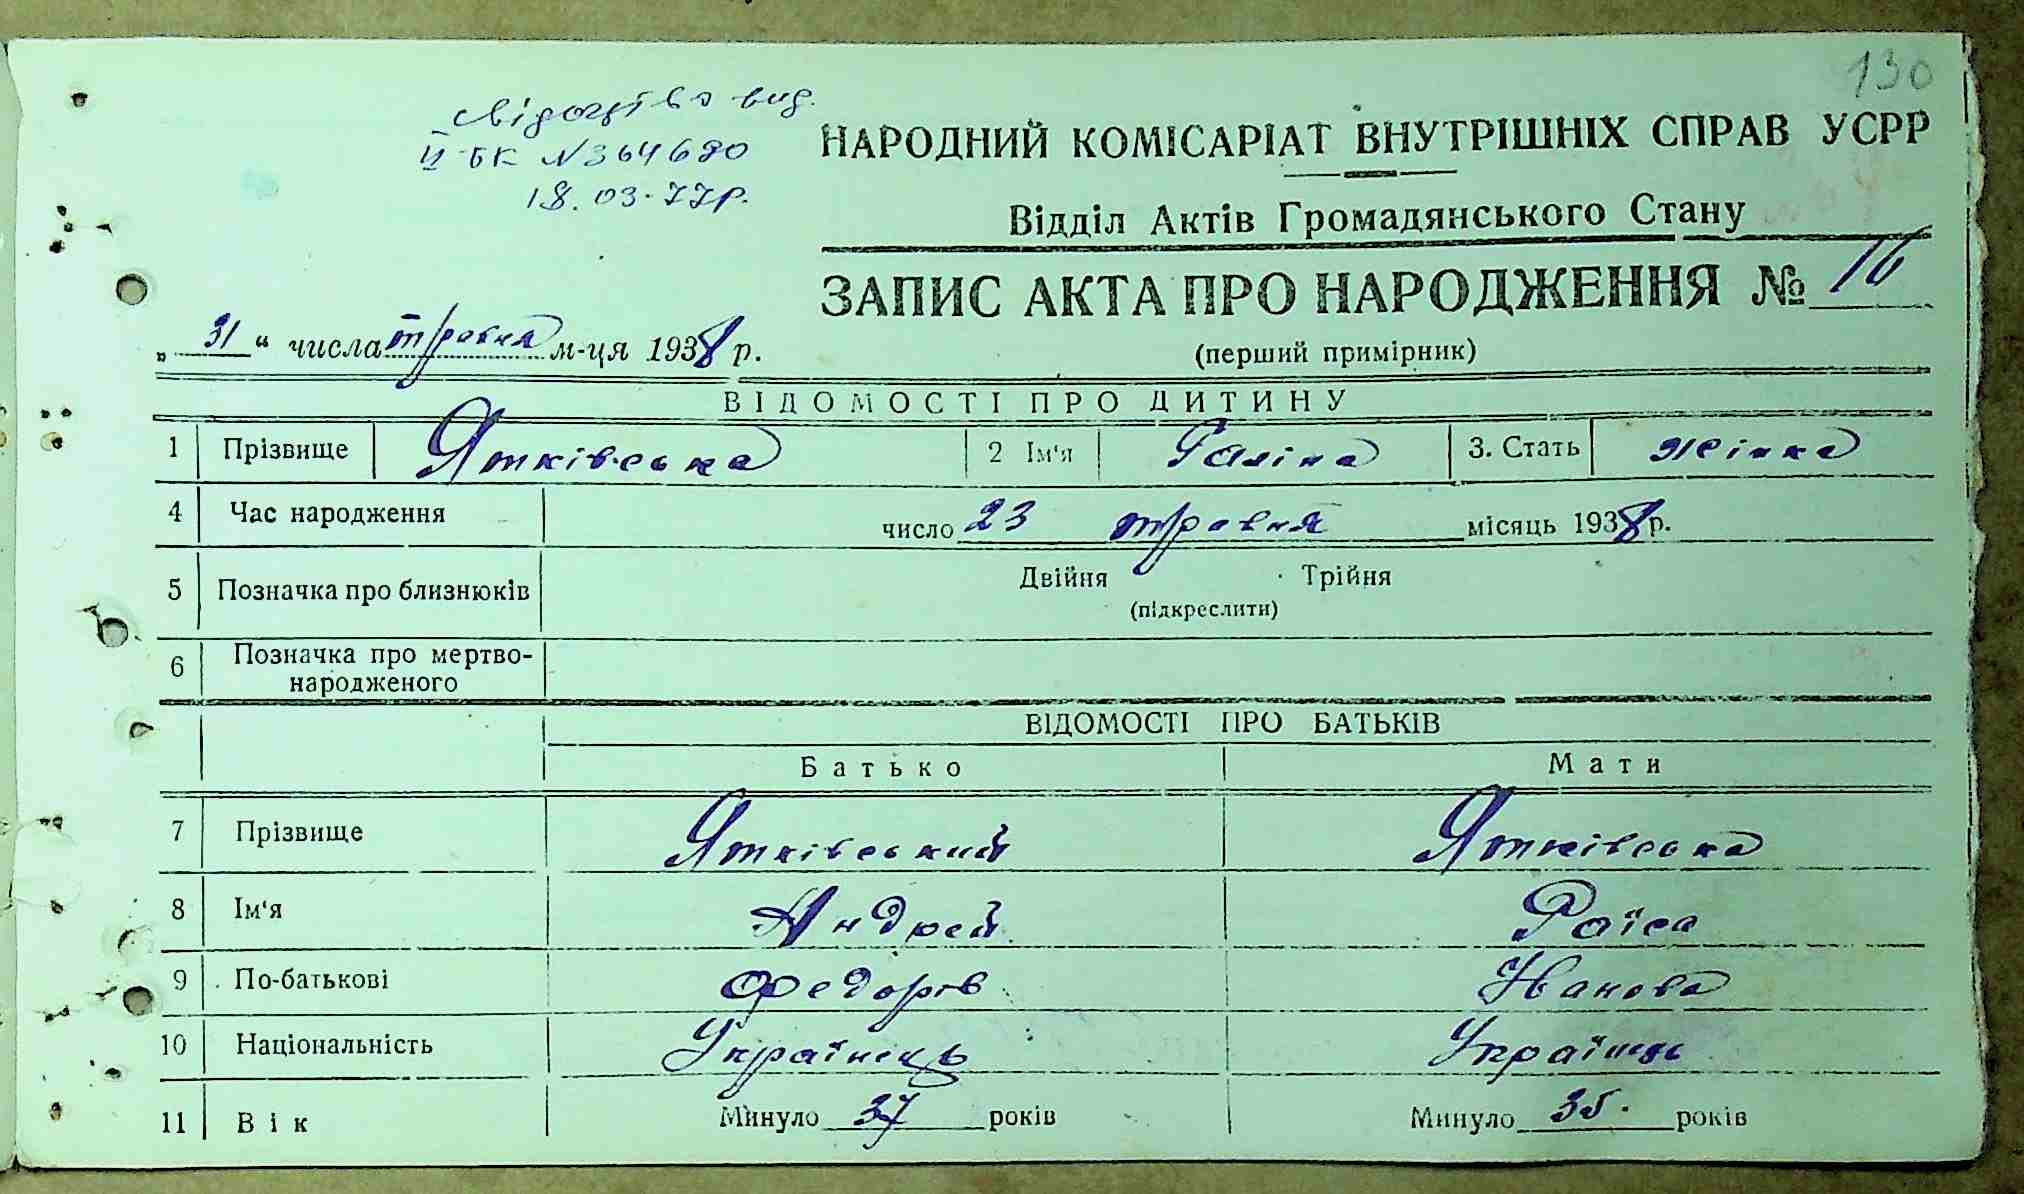 130
Свідоцтво вид.
ІІ-БК №364680
18.03.77р.
НАРОДНИЙ КОМІСАРІАТ ВНУТРІШНІХ СПРАВ УСРР
Відділ Актів Громадянського Стану
ЗАПИС АКТА ПРО НАРОДЖЕННЯ № 16
„31“ числа травня м-ця 1938 р.
(перший примірник)
ВІДОМОСТІ ПРО ДИТИНУ
1 Прізвище Ятківська 2 Ім'я Галіна 3. Стать жінка
4 Час народження число 23 травня місяць 1938 р.
5 Позначка про близнюків Двійня Трійня
(підкреслити)
6 Позначка про мертво-
народженого
ВІДОМОСТІ ПРО БАТЬКІВ
Батько Мати
7 Прізвище Ятківський Ятківська
8 Ім'я Андрей Раїса
9 По-батькові Федорів Іванова
10 Національність Українець Українць
11 Вік Минуло 37 років Минуло 35. років